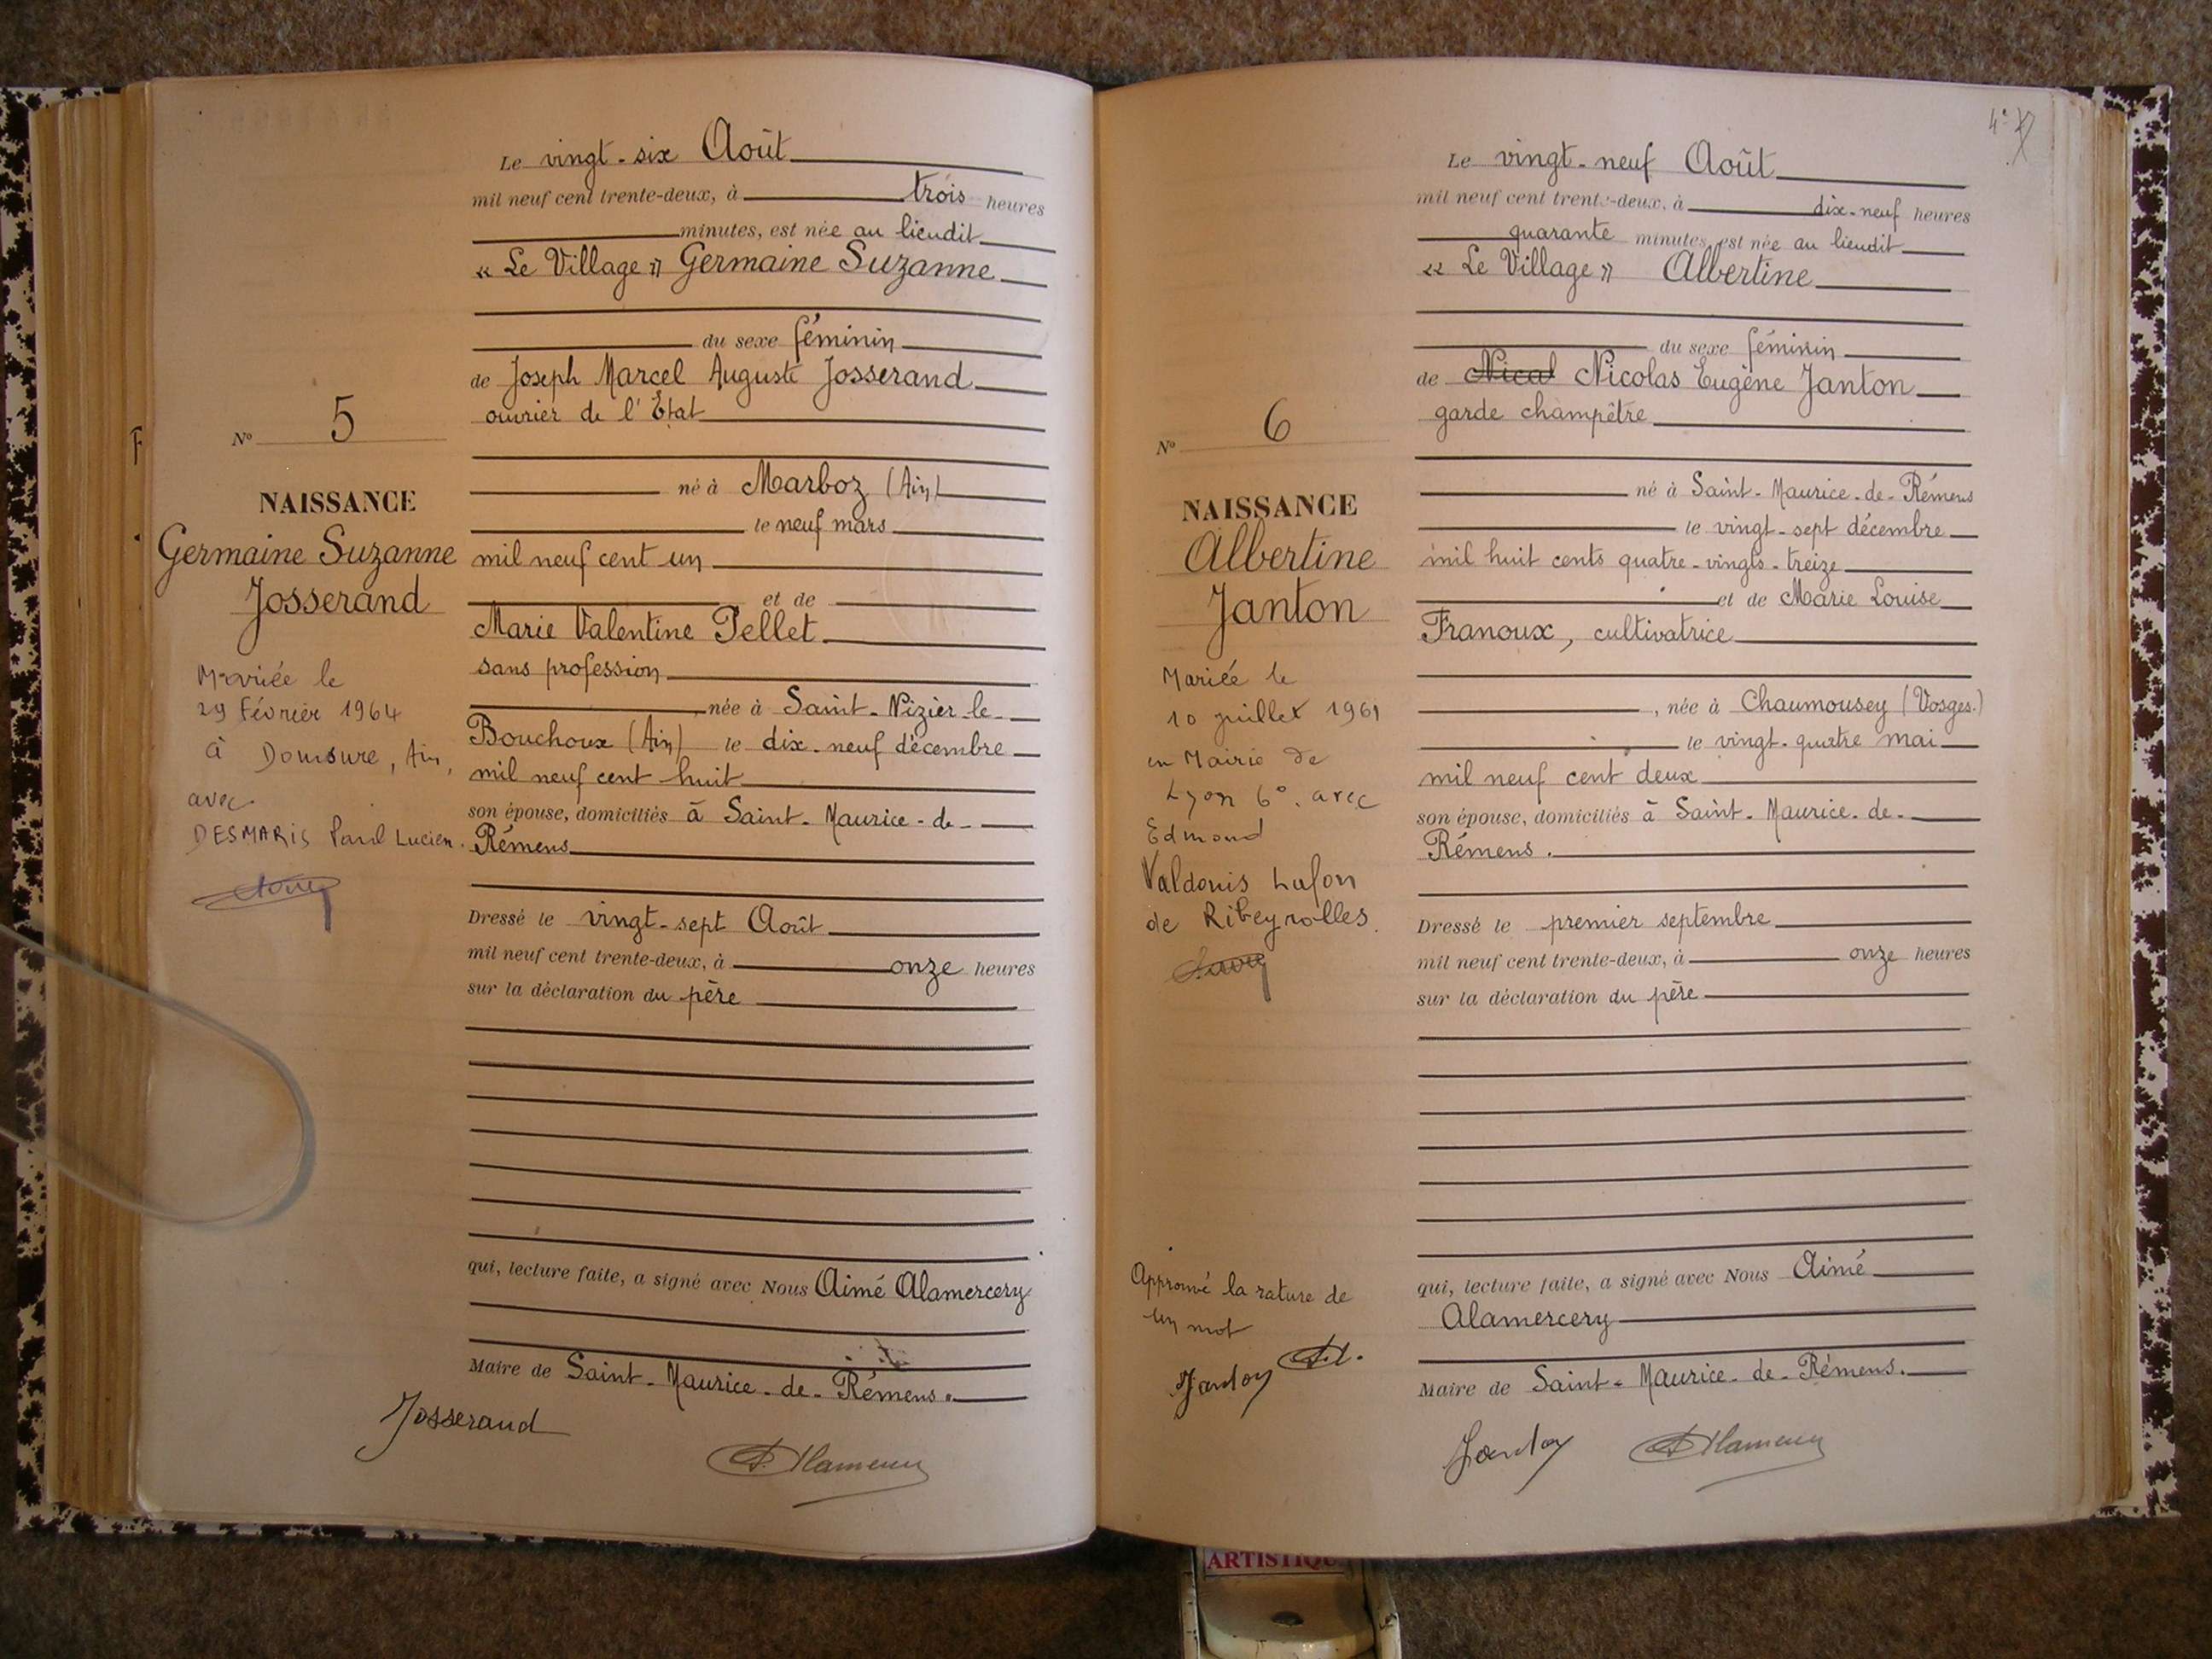 Le vingt-six Août
mil neuf cent trente-deux, à trois heures
minutes, est née au lieudit
« Le Village » Germaine Suzanne
du sexe féminin
de Joseph Marcel Auguste Josserand
ouvrier de l'Etat
né à Marboz (Ain)
le neuf mars
mil neuf cent un
et de
Marie Valentine Pellet
sans profession
née à Saint-Nizier-le-
Bouchoux (Ain) le dix-neuf décembre
mil neuf cent huit
son épouse, domiciliés à Saint-Maurice-de-
Rémens
Dressé le vingt-sept Août
mil neuf cent trente-deux, à onze heures
sur la déclaration du père
qui, lecture faite, a signé avec Nous Aimé Alamercery
Maire de Saint-Maurice-de-Rémens.
Josserand
N° 5
NAISSANCE
Germaine Suzanne
Josserand
Mariée le
29 Février 1964
à Domsure, Ain,
avec
DESMARIS Paul Lucien.
F
4e
Le vingt-neuf Août
mil neuf cent trente-deux, à dix-neuf heures
quarante minutes, est née au lieudit
« Le Village » Albertine
du sexe féminin
de Nical Nicolas Eugène Janton
garde champêtre
né à Saint-Maurice-de-Rémens
le vingt-sept décembre
mil huit cents quatre-vingts-treize
et de Marie Louise
Franoux, cultivatrice
, née à Chaumousey (Vosges.)
le vingt-quatre mai
mil neuf cent deux
son épouse, domiciliés à Saint-Maurice-de-
Rémens.
Dressé le premier septembre
mil neuf cent trente-deux, à onze heures
sur la déclaration du père
qui, lecture faite, a signé avec Nous Aimé
Alamercery
Maire de Saint-Maurice-de-Rémens.
Janton
N° 6
NAISSANCE
Albertine
Janton
Mariée le
10 juillet 1961
en Mairie de
Lyon 6°. avec
Edmond
Valdonis Lafon
de Ribeyrolles.
Approuvé la rature de
un mot
Janton
ARTISTIQU